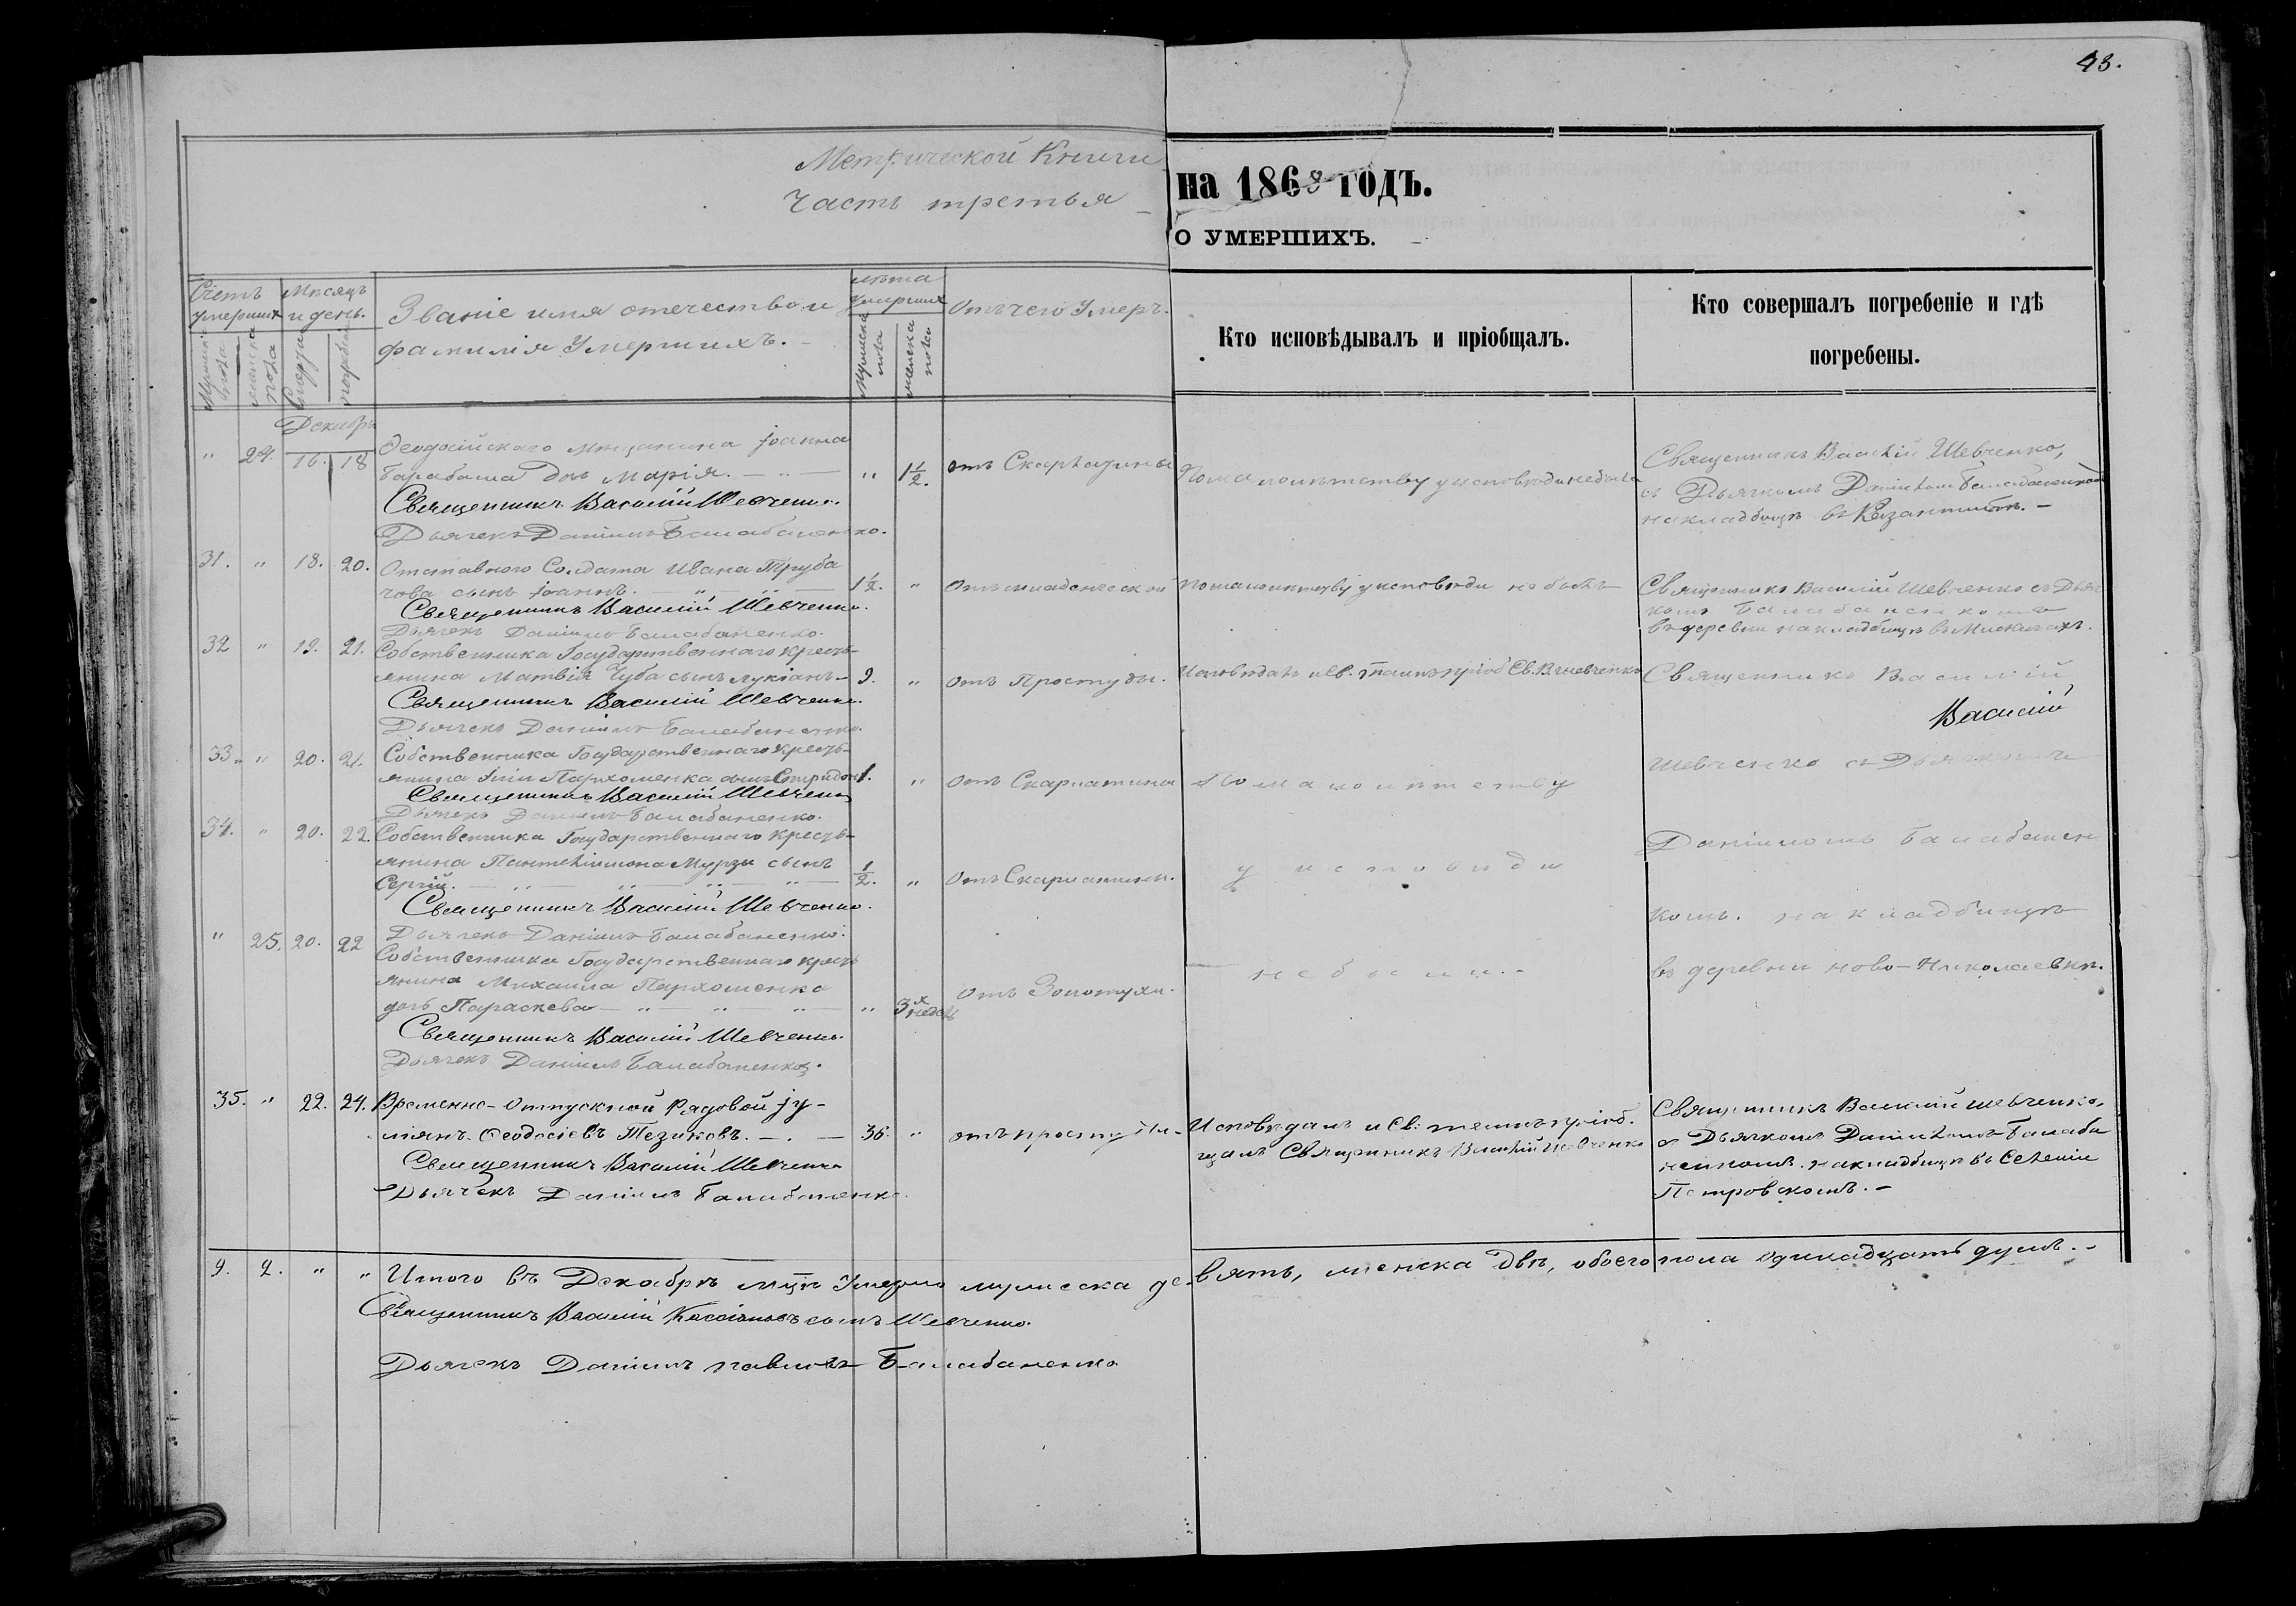 43.
Метрической Книги
на 1868 годъ.
Часть третья
О УМЕРШИХЪ.
Счетъ умершихъ
Мѣсяцъ и день.
Званіе имя отечество и
фамилія Умершихъ.
лѣта умершихъ
Отъ чего Умеръ.
Кто исповѣдывалъ и пріобщалъ.
Кто совершалъ погребеніе и гдѣ
погребены.
мужска пола
женска пола
Декабрь
" 24. 16. 18 Ѳеодосійскаго мѣщанина Іоанна
Барабаша дочь Марія. " 1 1/2. отъ Скарлатины
По малолѣтству у исповѣди не была
Священникъ Василій Шевченко,
съ Дьячкомъ Даніиломъ Балабаненкомъ
на кладбищѣ въ
Священникъ Василій Шевченко.
Дьячекъ Даніилъ Балабаненко.
31. " 18. 20. Отставного Солдата Ивана Труба
чова сынъ Іоаннъ. 1 1/2. " Отъ младенческой
по малолѣтству у исповѣди не былъ
Священникъ Василій Шевченко съ Дьяч
комъ Балабаненкомъ
въ деревни на кладбищѣ въ
Священникъ Василій Шевченко.
Дьячекъ Даніилъ Балабаненко.
32 " 19. 21. Собственника Государственнаго кресть-
янина Матвія Чуба сынъ Лукіанъ 9. " отъ Простуды.
Исповѣдалъ и Св. таинъ пріоб. Св. В. Шевченко
Священникъ Василій
Василій
Священникъ Василій Шевченко.
Дьячекъ Даніилъ Балабаненко.
33. " 20. 21. Собственника Государственнаго кресть-
янина Іліи Пархоменка сынъ Спиридонъ 1. " отъ Скарлатины
По малолѣтству
Шевченко съ Дьячкомъ
Священникъ Василій Шевченко
Дьячекъ Даніилъ Балабаненко.
34. " 20. 22. Собственника Государственнаго кресть-
янина Пантелімона Мурзы сынъ
Сергій. 1/2. " отъ Скарлатины.
у исповѣди
Даніиломъ Балабанен
Священникъ Василій Шевченко.
Дьячекъ Даніилъ Балабаненко.
комъ. на кладбищѣ
" 25. 20. 22 Собственника Государственнаго кресть
янина Михаила Пархоменко
дочь Параскева " 3х недель отъ Золотухи.
не были.
въ деревни Ново-Николаевки.
Священникъ Василій Шевченко.
Дьячекъ Даніилъ Балабаненко.
35. " 22. 24. Временно-отпускной Рядовой Іу-
ліянъ Ѳеодосіевъ Тезиковъ. 36. " отъ простуды
Исповѣдалъ и Св. таинъ пріоб.
щалъ Священникъ Василій Шевченко
Священникъ Василій Шевченко,
съ Дьячкомъ Даніиломъ Балаба
ненкомъ. на кладбищѣ въ Селеніи
Петровскомъ.
Священникъ Василій Шевченко
Дьячекъ Даніилъ Балабаненко.
9. 2. " " Итого въ Декабрѣ мцѣ Умерло мужеска девять, женска двѣ, обоего пола одинадцать душъ.
Священникъ Василій Кассіановъ сынъ Шевченко.
Дьячекъ Даніилъ Павловъ Балабаненко